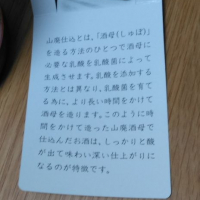 山廃仕込とは、「酒母(しゅぼ)」
を造る方法のひとつで酒母に
必要な乳酸を乳酸菌によって
生成させます。乳酸を添加する
方法とは異なり、乳酸菌を育て
る為に、より長い時間をかけて
酒母を造ります。このように時
間をかけて造った山廃酒母で
仕込んだお酒は、しっかりと酸
が出て味わい深い仕上がりに
なるのが特徴です。